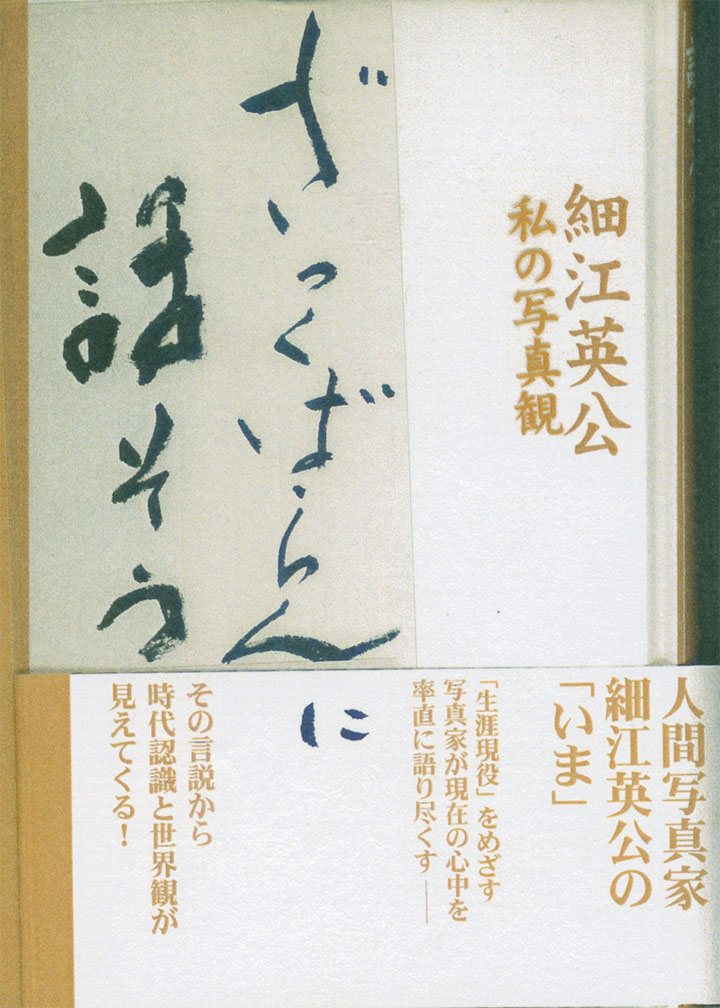 細江英公
私の写真観
ざっくばらんに
話そう
人間写真家
細江英公の
「いま」
「生涯現役」をめざす
写真家が現在の心中を
率直に語り尽くす――
その言説から
時代認識と世界観が
見えてくる！